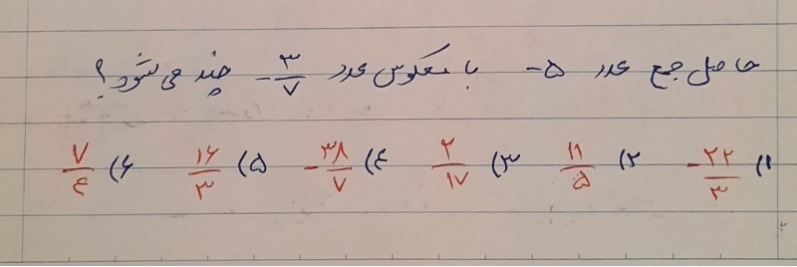 حاصل جمع عدد ۵- با معکوس عدد -۳/۷ چند می شود؟
۱) -۲۲/۳ ۲) ۱۱/۵ ۳) ۲/۱۷ ٤) -۳۸/۷ ۵) ۱۶/۳ ۶) ۷/٤